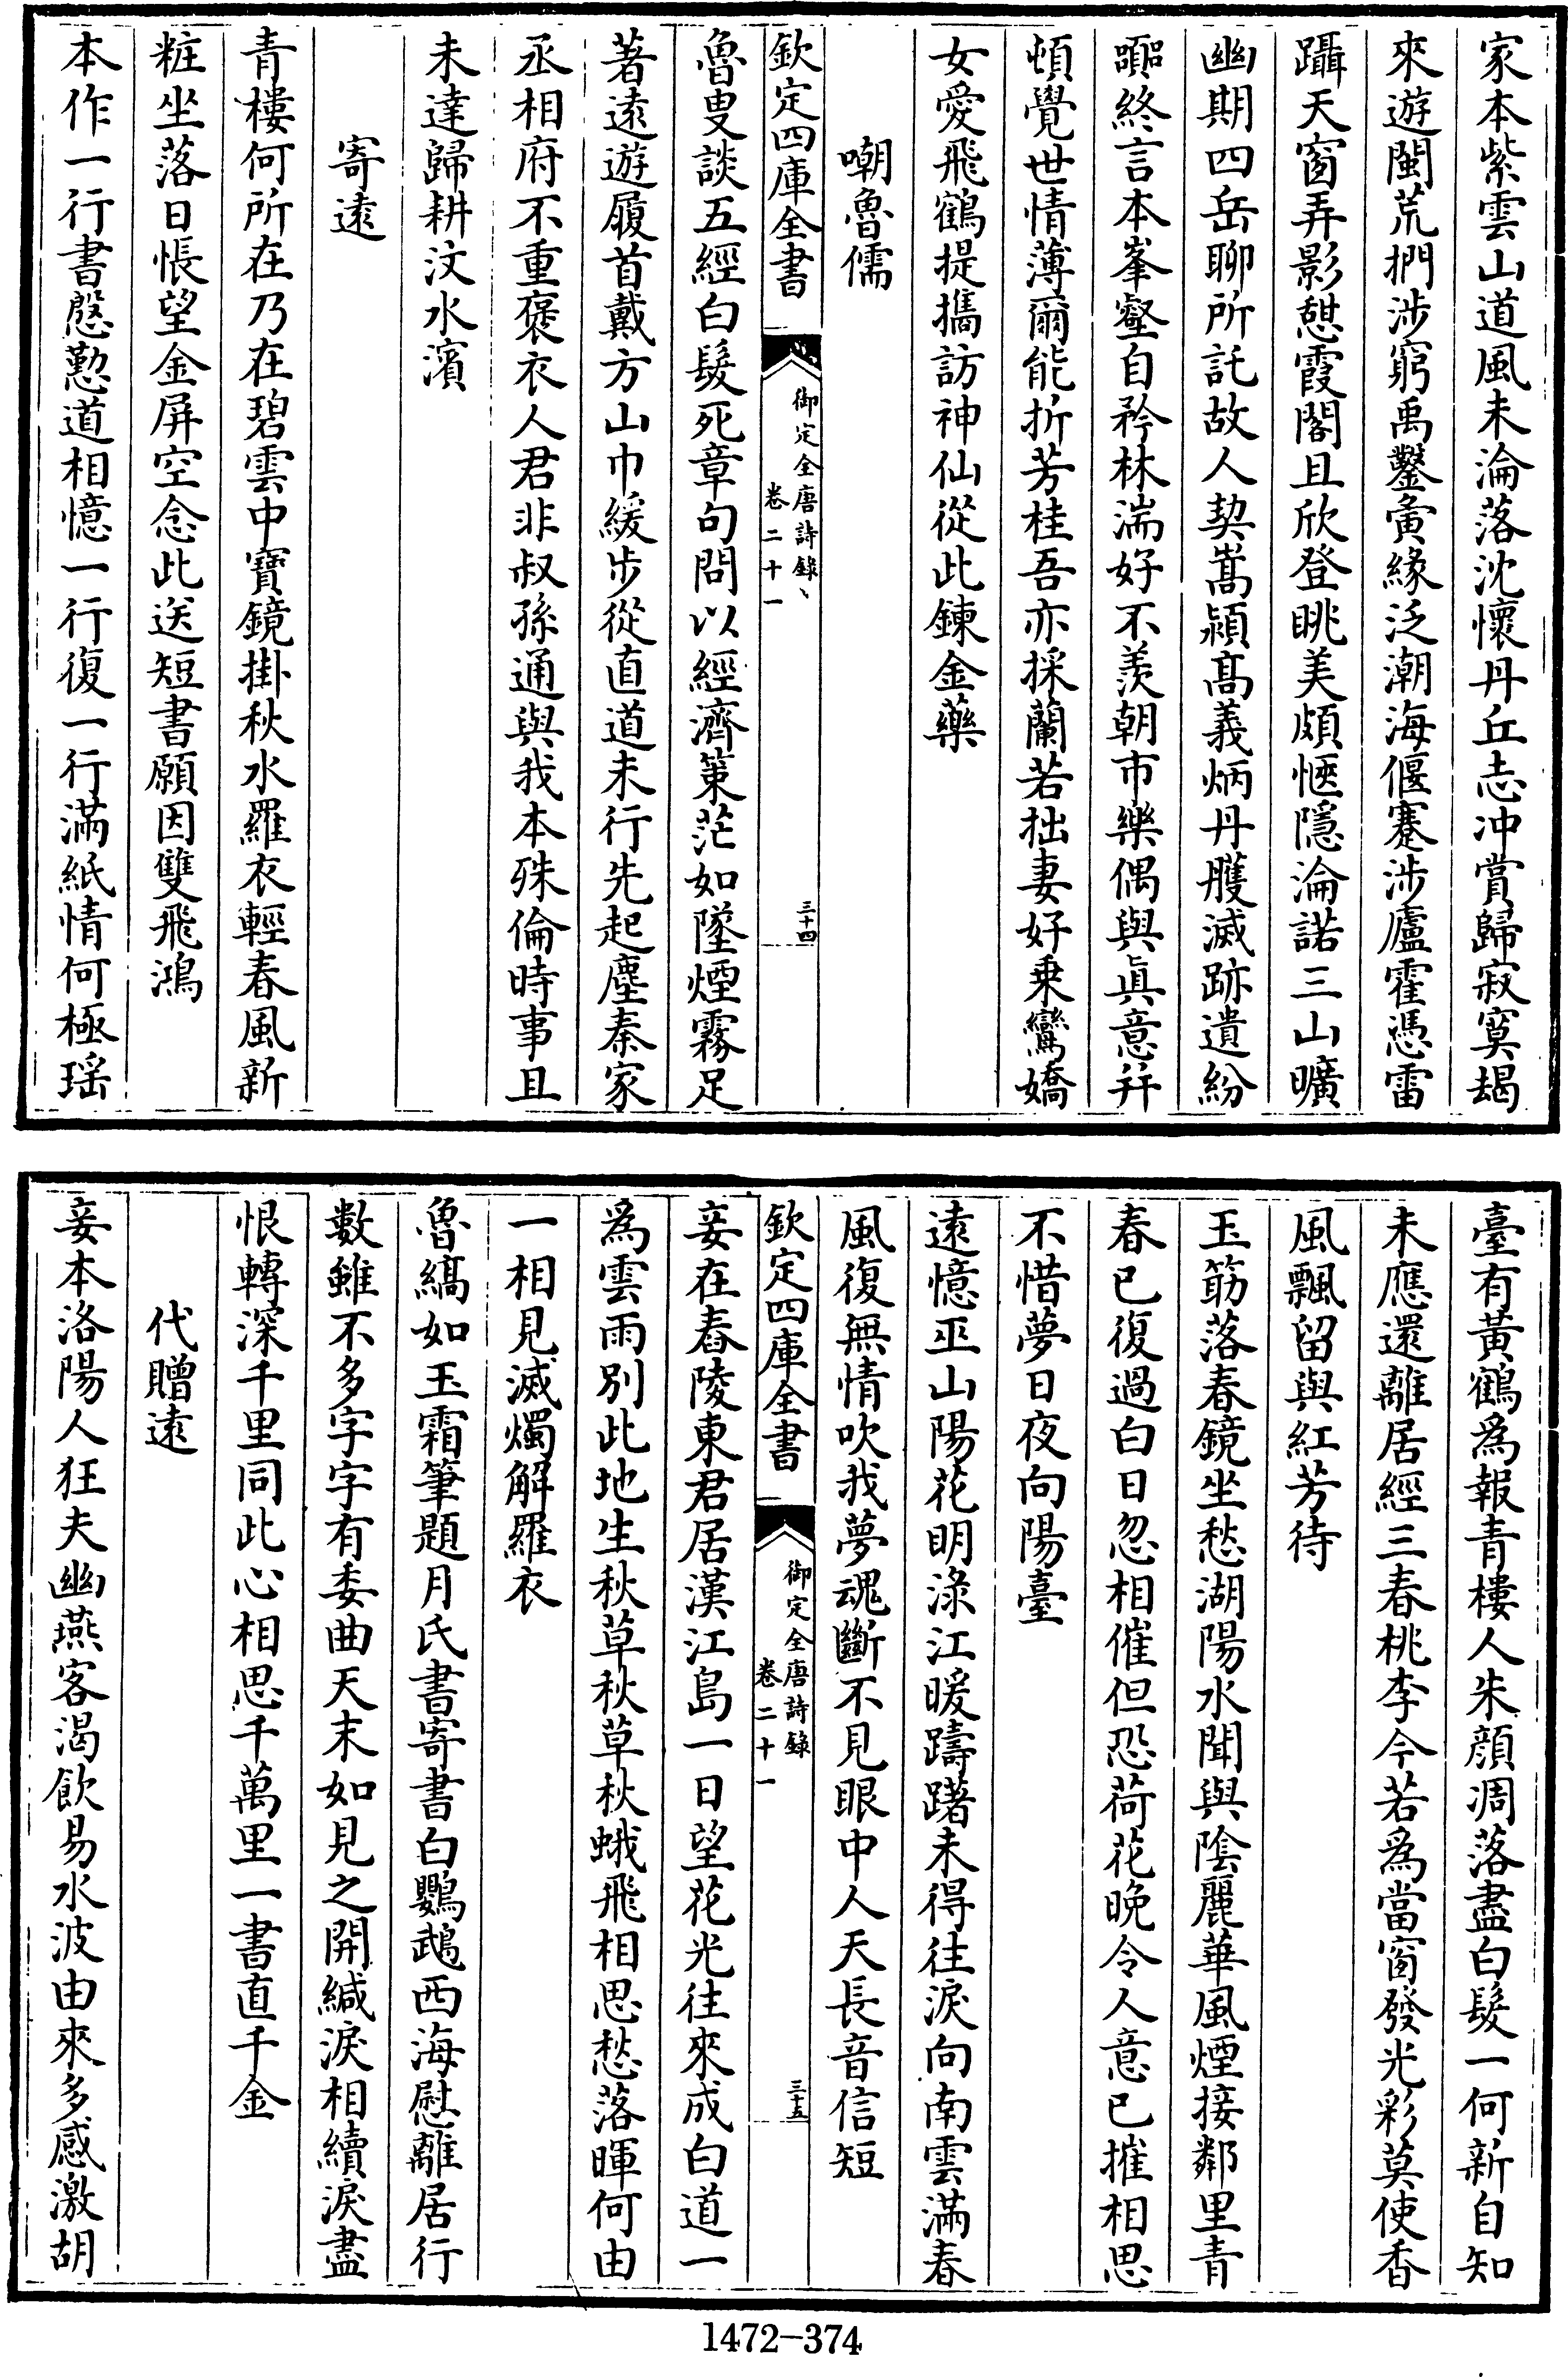 家本紫雲山道風未淪落沈懷丹丘志冲賞歸寂寞朅
來遊閩荒捫涉窮禹鑿夤緣泛潮海偃蹇涉廬霍憑雷
躡天窗弄影憩霞閣且欣登眺美頗愜隱淪諾三山曠
幽期四岳聊所託故人契嵩潁髙義炳丹雘滅跡遺紛
嚻終言本峯壑自矜林湍好不羨朝市樂偶與眞意幷
頓覺世情薄爾能折芳桂吾亦採蘭若拙妻好乗鸞嬌
女愛飛鶴提攜訪神仙從此鍊金藥
嘲魯儒
欽定四庫全書
御定全唐詩錄
卷二十一
三十四
魯叟談五經白髮死章句問以經濟策茫如墜煙霧足
著遠遊履首戴方山巾緩步從直道未行先起塵秦家
丞相府不重褒衣人君非叔孫通與我本殊倫時事且
未達歸耕汶水濱
寄遠
青樓何所在乃在碧雲中寶鏡掛秋水羅衣輕春風新
粧坐落日悵望金屏空念此送短書願因雙飛鴻
本作一行書慇懃道相憶一行復一行滿紙情何極瑶
臺有黃鶴爲報青樓人朱顔凋落盡白髮一何新自知
未應還離居經三春桃李今若爲當窗發光彩莫使香
風飄留與紅芳待
玉筯落春鏡坐愁湖陽水聞與陰麗華風煙接鄰里青
春已復過白日忽相催但恐荷花晚令人意已摧相思
不惜夢日夜向陽臺
遠憶巫山陽花明淥江暖躊躇未得往淚向南雲滿春
風復無情吹我夢魂斷不見眼中人天長音信短
欽定四庫全書
御定全唐詩錄
卷二十一
三十五
妾在舂陵東君居漢江島一日望花光往來成白道一
爲雲雨別此地生秋草秋草秋蛾飛相思愁落暉何由
一相見滅燭解羅衣
魯縞如玉霜筆題月氏書寄書白鸚鵡西海慰離居行
數雖不多字字有委曲天末如見之開緘淚相續淚盡
恨轉深千里同此心相思千萬里一書直千金
代贈遠
妾本洛陽人狂夫幽燕客渴飲易水波由來多感激胡
1472-374